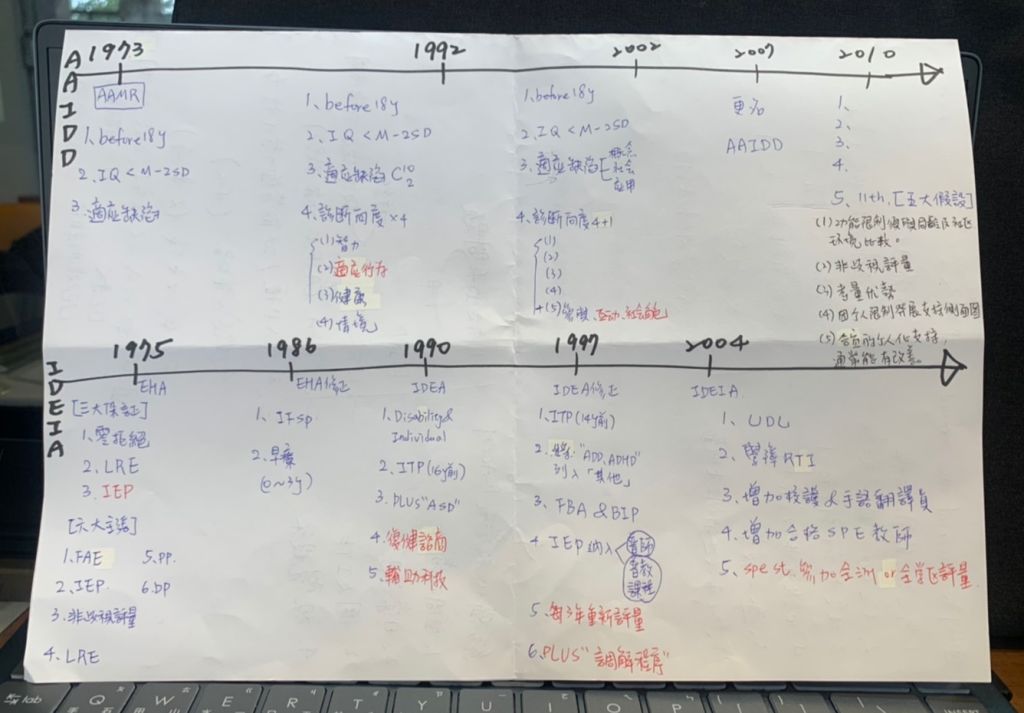 AAIDD
1973
1992
2002
2007
2010
AAMR
1、before18y
2、IQ < M-2SD
3、適应缺陷
1、before18y
2、IQ < M-2SD
3、適应缺陷 C
10
2
4、診断向度 ×4
(1)智力
(2)適应行为
(3)健康
(4)情境
1、before18y
2、IQ < M-2SD
3、適应缺陷
概念
社会
应用
4、診断向度4+1
(1)
(2)
(3)
(4)
+(5)参與、互动、社会角色
更名
AAIDD
1、
2、
3、
4.
5、11th、[五大假設]
(1)功能限制須與同齡及社区
环境比較。
(2)非歧視評量
(3)考量优勢
(4)因个人限制發展支持側面圖
(5)合宜的个人化支持,
通常能有改善。
IDEIA
1975
1986
1990
1997
2004
EHA
[三大保証]
1、零拒絕
2、LRE
3、IEP
[六大主張]
1、FAE
2、IEP.
3、非歧視評量
4、LRE
5、PP.
6、DP
EHA修正
1、IFSP
2、早療
(0~3y)
IDEA
1、Disability&
Individual
2、ITP(16y前)
3、PLUS"ASD"
4、復健諮商
5、輔助科技
IDEA修正
1、ITP(14y前)
2、將"ADD、ADHD"
列入「其他」
3、FBA & BIP
4、IEP納入
普師
普教
課程
5、每3年重新評量
6、PLUS"調解程序"
IDEIA
1、UDL
2、學障RTI
3、增加校護&手語翻譯員
4、增加合格SPE教師
5、spe st. 參加全州 or 全学区評量
tab
Q
W
E
R
T
Y
U
I
O
P